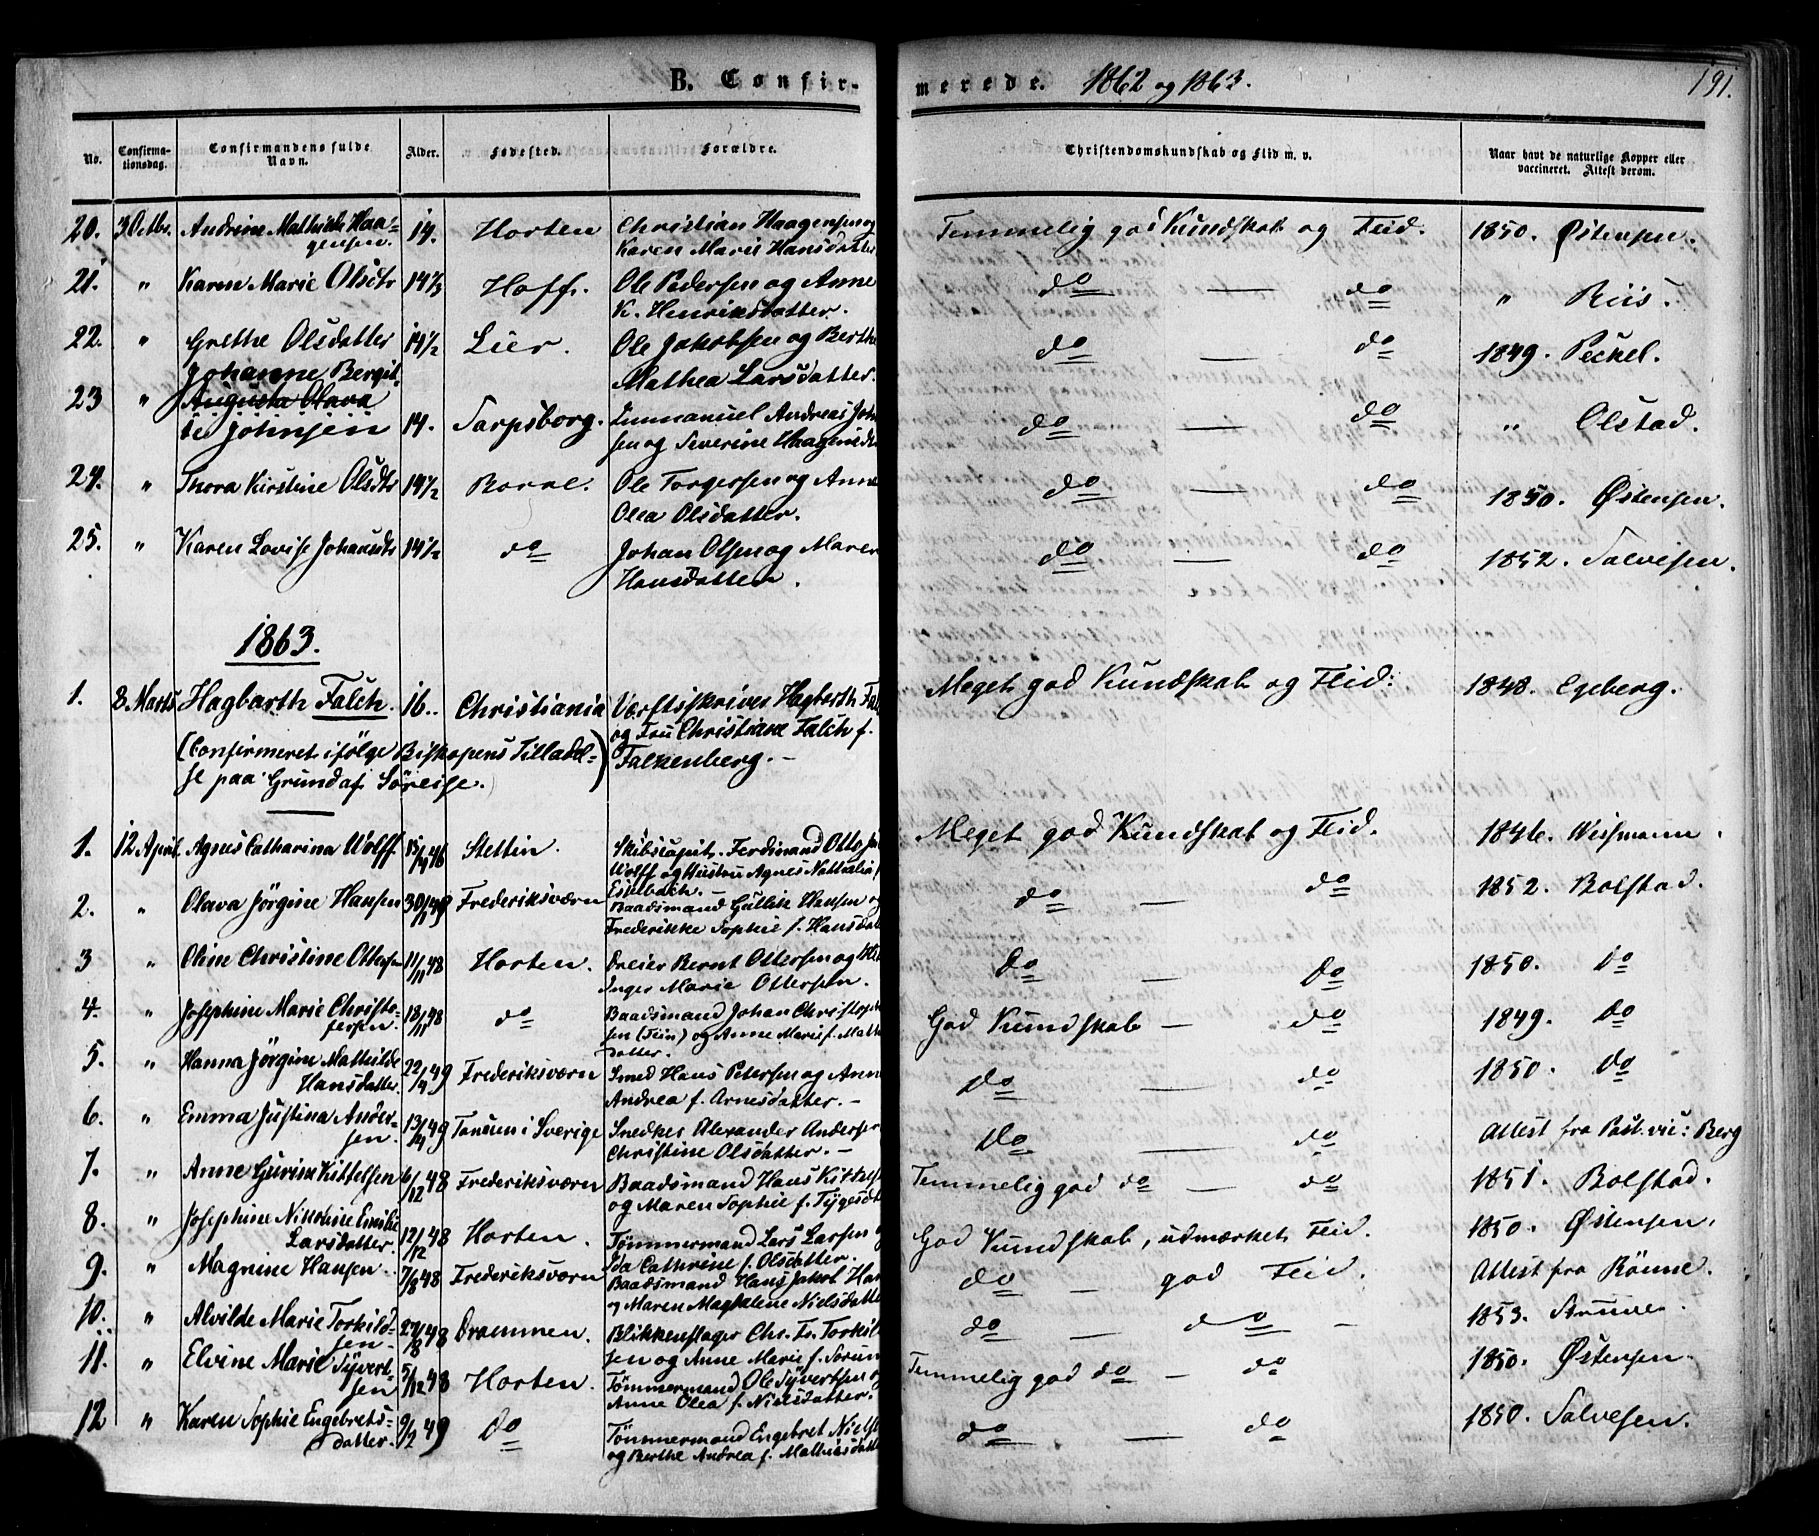 B. Confir-
merede. 1862 og 1863.
191.
No.
Confirma-
tionsdag.
Confirmandens fulde
Navn.
Alder.
Fødested.
Forældre.
Christendomskundskab og Flid m. v.
Naar havt de naturlige Kopper eller
vaccineret. Attest derom.
20. 3 Octbr. Andrine Mathilde Haa-
gensen. 14. Horten Christian Haagensen og
Karen Marie Hansdatter Temmelig god Kundskab og Flid. 1850. Østensen.
21. " Karen Marie Olsdtr 14 1/3 Hoff. Ole Pedersen og Anne
K. Henriksdatter. do — do " Riis.
22. " Grethe Olsdatter 14 1/2 Lier. Ole Jakobsen og Berthe
Mathea Larsdatter. do — do 1849. Peckel.
Johanne Bergit-
23 " Augusta Olava
te Johnsen 14. Sarpsborg. Immanuel Andreas John
sen og Severine Haagensdt do — do " Olstad.
24. " Thora Kirstine Olsdtr 14 1/2 Borre. Ole Torgersen og Anne
Olea Olsdatter. do — do 1850. Østensen.
25. " Karen Lovise Johansdtr 14 1/2 do Johan Olsen og Maren
Hansdatter. do — do 1852. Salvesen.
1863.
1. 8. Marts Hagbarth Falch. 16.. Christiania Værftsskriver Hagbarth Fal
og Fru Christiane Falch f.
Falkenberg. — Meget god Kundskab og Flid: 1848. Egeberg.
(Confirmeret ifølge Biskopens Tilladel=
se paa Grund af Søreise.)
1. 12 April. Agnes Catharina Wolff 15/4 46 Stettin. Skibscapit. Ferdinand Otto
Wolff og Hustru Agnes Nathalia f
Eskebach. Meget god Kundskab og Flid. 1846. Wessmann.
2. " Olava Jørgine Hansen 30/1 49 Frederiksværn Baadsmand Gullik Hansen og
Frederikke Sophie f. Hansdat do — do 1852. Bolstad.
3 " Oline Christine Ottersen 11/11 48 Horten. Dreier Bernt Ottersen og
Inger Marie Ottersen. do — do 1850. do
4. " Josephine Marie Christo-
fersen. 18/11 48 do Baadsmand Johan Christofer
sen (Fiin) og Anne Marie f. Math
datter. God Kundskab — do 1849. do
5. " Hanna Jørgine Mathilde
Hansdatter. 22/4 49 Frederiksværn Smed Hans Petersen og Anne
Andrea f. Arnesdatter. — do — do 1850. do
6. " Emma Justina Ander-
sen. 13/4 49 Tanum i Sverige Snedker Alexander Andersen
Christine Olsdatter. — do — do Attest fra Past. vic: Berg
7. " Anne Gurine Kittelsen 6/12 48 Frederiksværn Baadsmand Hans Kittelse
og Maren Sophie f. Tygesdt Temmelig god do — do 1851. Bolstad.
8. " Josephine Nicoline Emilie
Larsdatter. 12/12 48 Horten. Tømmermand Lars Larsen og
Ida Cathrine f. Olsdatter. God Kundskab, udmærket Flid. 1850. Østensen.
9. " Magnine Hansen. 7/8 48 Frederiksværn Baadsmand Hans Jakob Han
og Maren Magdalene Nielsdatte do — god Flid. Attest fra Rönne.
10. " Alvilde Marie Torkild-
sen. 27/8 48 Drammen. Blikkenslager Chr. Fr. Torkil
sen og Anne Marie f. Sorun do — do — 1853.
11. " Elvine Marie Syvert-
sen 5/12 48 Horten. Tømmermand Ole Syvertsen og
Anne Olea f. Nielsdatter. Temmelig god do — do 1850. Østensen.
12 " Karen Sophie Engebrets-
datter. 9/2 49 do Tømmermand Engebret Niels
og Berthe Andrea f. Mathiasdatte do — do 1850. Salvesen.